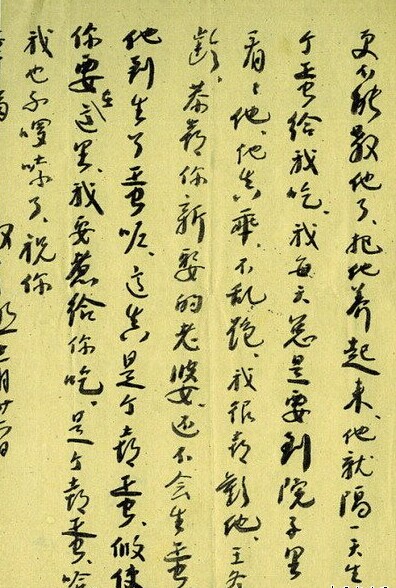 更不能殺他了、把他养起来、他就隔一天生
个蛋给我吃、我每天总是要到院子里
看看他、他真乖、不乱跑、我很喜欢他、
恭喜你新娶的老婆、还不会生蛋
他到生了蛋呢、这真是个喜蛋、假使
你要在这里、我要煮给你吃、是个喜蛋、哈
我也不啰嗦了、祝你
月廿六日